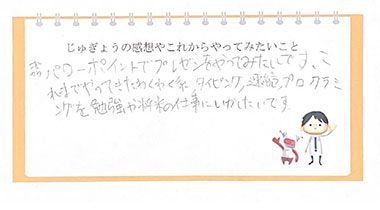 じゅぎょうの感想やこれからやってみたいこと
パワーポイントでプレゼンをやってみたいです。こ
れまでやってきたわくわく系タイピング、プログラミ
ングを勉強や将来の仕事にいかしたいです。